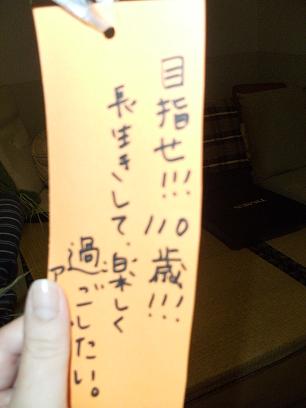 目指せ!!! 110歳!!!
長生きして、楽しく
過ごしたい。